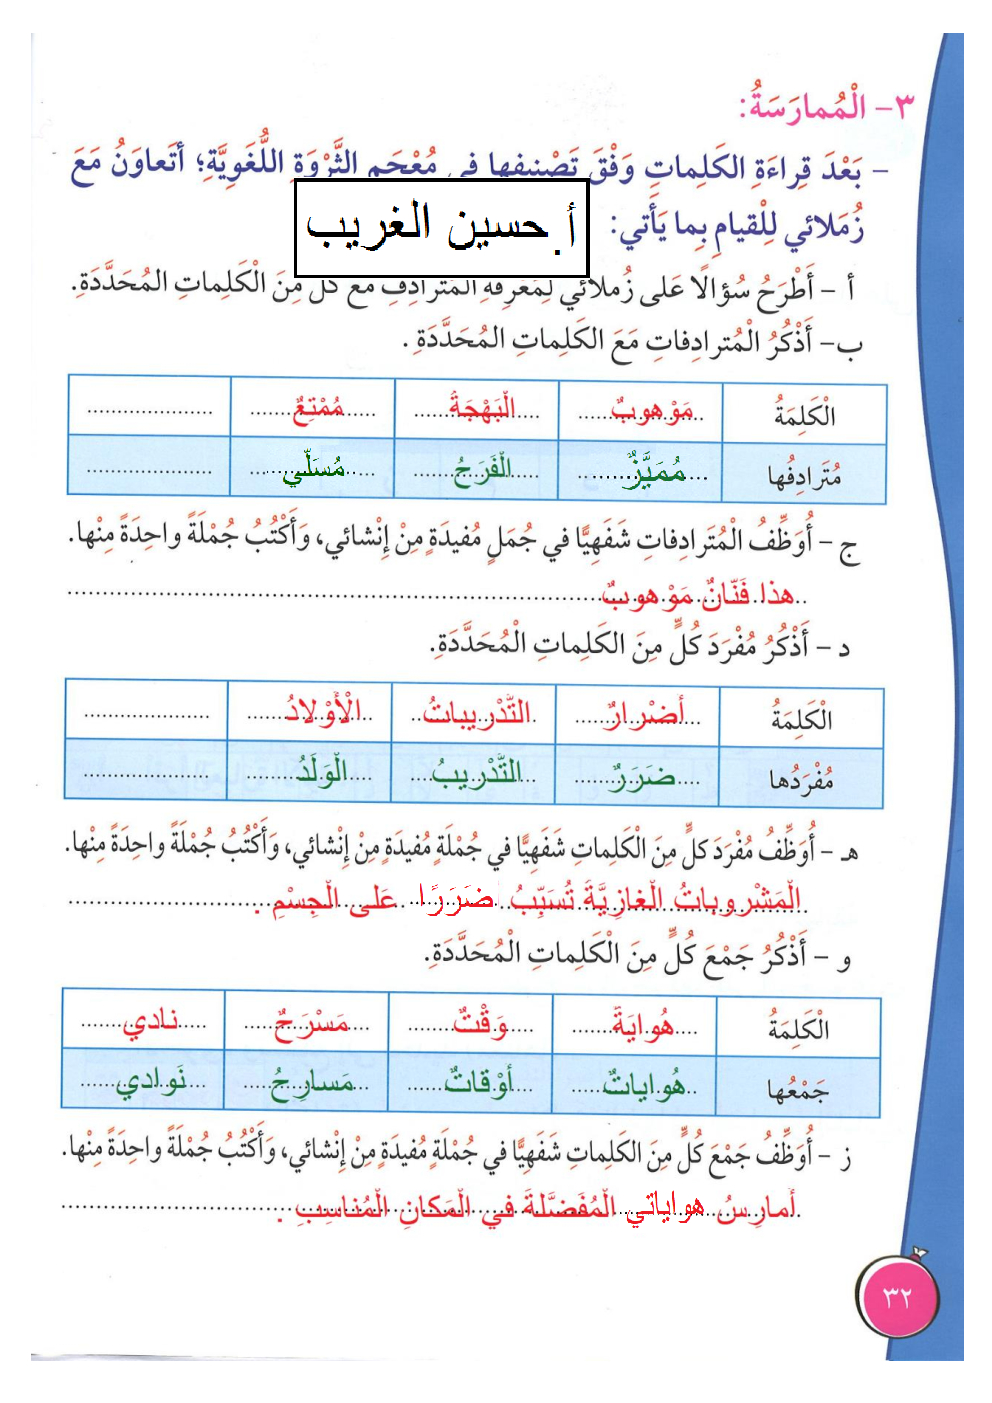 ٣- الْمُمارَسَةُ:
- بَعْدَ قِراءَةِ الكَلِماتِ وَفْقَ تَصْنيفِها في مُعْجَمِ الثَّرْوَةِ اللُّغَوِيَّةِ؛ أَتَعاوَنُ مَعَ
زُمَلائي لِلْقيامِ بِما يَأْتي:
أ. حسين الغريب
أ - أَطْرَحُ سُؤالًا عَلى زُملائي لِمَعْرِفَةِ الْمُتَرادِفِ مَع كُلٍّ مِنَ الْكَلِماتِ المُحَدَّدَةِ.
ب- أَذْكُرُ الْمُترادِفاتِ مَعَ الكَلِماتِ المُحَدَّدَةِ .
الْكَلِمَةُ مَوْهوبٌ الْبَهْجَةُ مُمْتِعٌ
مُتَرادِفُها مُمَيَّزٌ الْفَرَحُ مُسَلّي
ج - أُوَظِّفُ الْمُتَرادِفاتِ شَفَهِيًّا في جُمَلٍ مُفيدَةٍ مِنْ إِنْشائي، وَأَكْتُبُ جُمْلَةً واحِدَةً مِنْها.
هذا فَنّانٌ مَوْهوبٌ
د - أَذْكُرُ مُفْرَدَ كُلٍّ مِنَ الكَلِماتِ الْمُحَدَّدَةِ.
الْكَلِمَةُ أَضْرارٌ التَّدْريباتُ الْأَوْلادُ
مُفْرَدُها ضَرَرٌ التَّدْريبُ الْوَلَدُ
هـ - أُوَظِّفُ مُفْرَدَ كلٍّ مِنَ الْكَلِماتِ شَفَهِيًّا في جُمْلَةٍ مُفيدَةٍ مِنْ إِنْشائي، وَأَكْتُبُ جُمْلَةً واحِدَةً مِنْها.
الْمَشْروباتُ الْغازِيَّةُ تُسَبِّبُ ضَرَرًا عَلى الْجِسْمِ .
و - أَذْكُرُ جَمْعَ كُلٍّ مِنَ الْكَلِماتِ الْمُحَدَّدَةِ.
الْكَلِمَةُ هُوايَةٌ وَقْتٌ مَسْرَحٌ نادي
جَمْعُها هُواياتٌ أَوْقاتٌ مَسارِحُ نَوادي
ز - أُوَظِّفُ جَمْعَ كُلٍّ مِنَ الكَلِماتِ شَفَهِيًّا في جُمْلَةٍ مُفيدَةٍ مِنْ إِنْشائي، وَأَكْتُبُ جُمْلَةً واحِدَةً مِنْها.
أُمارِسُ هواياتي الْمُفَضَّلةَ في الْمَكانِ الْمُناسِبِ .
٣٢